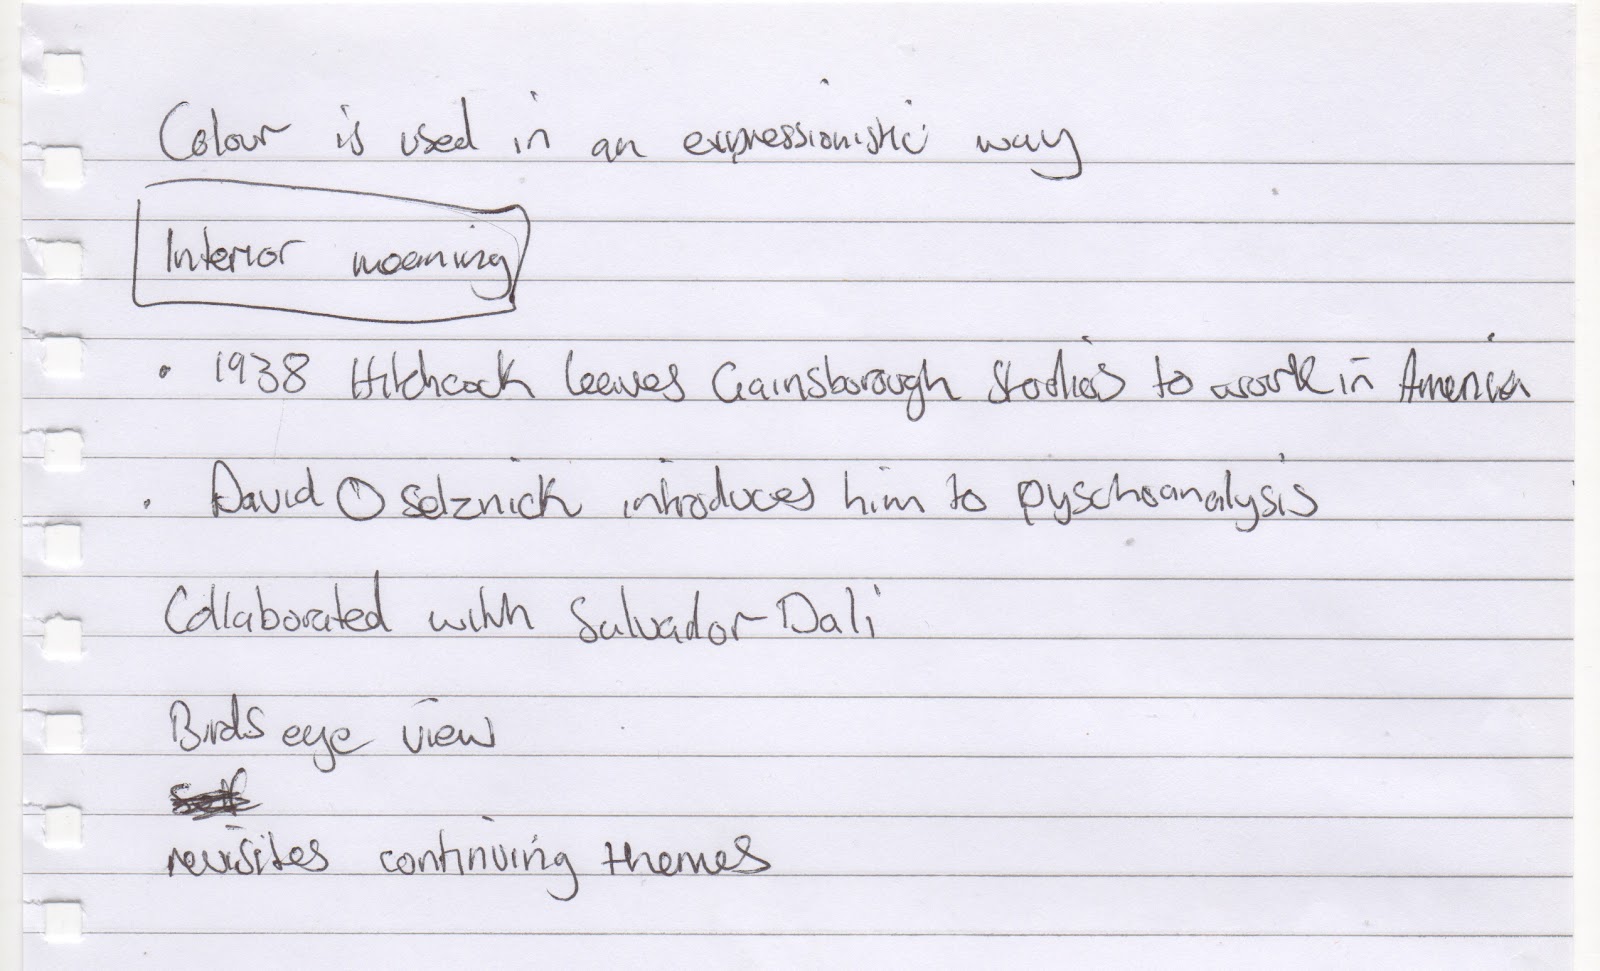 Colour is used in an expressionistic way
Interior meaning
• 1938 Hitchcock leaves Gainsborough Studios to work in America
• David O Selznick introduces him to pyschoanalysis
Collaborated with Salvador Dali
Birds eye view
revisites continuing themes